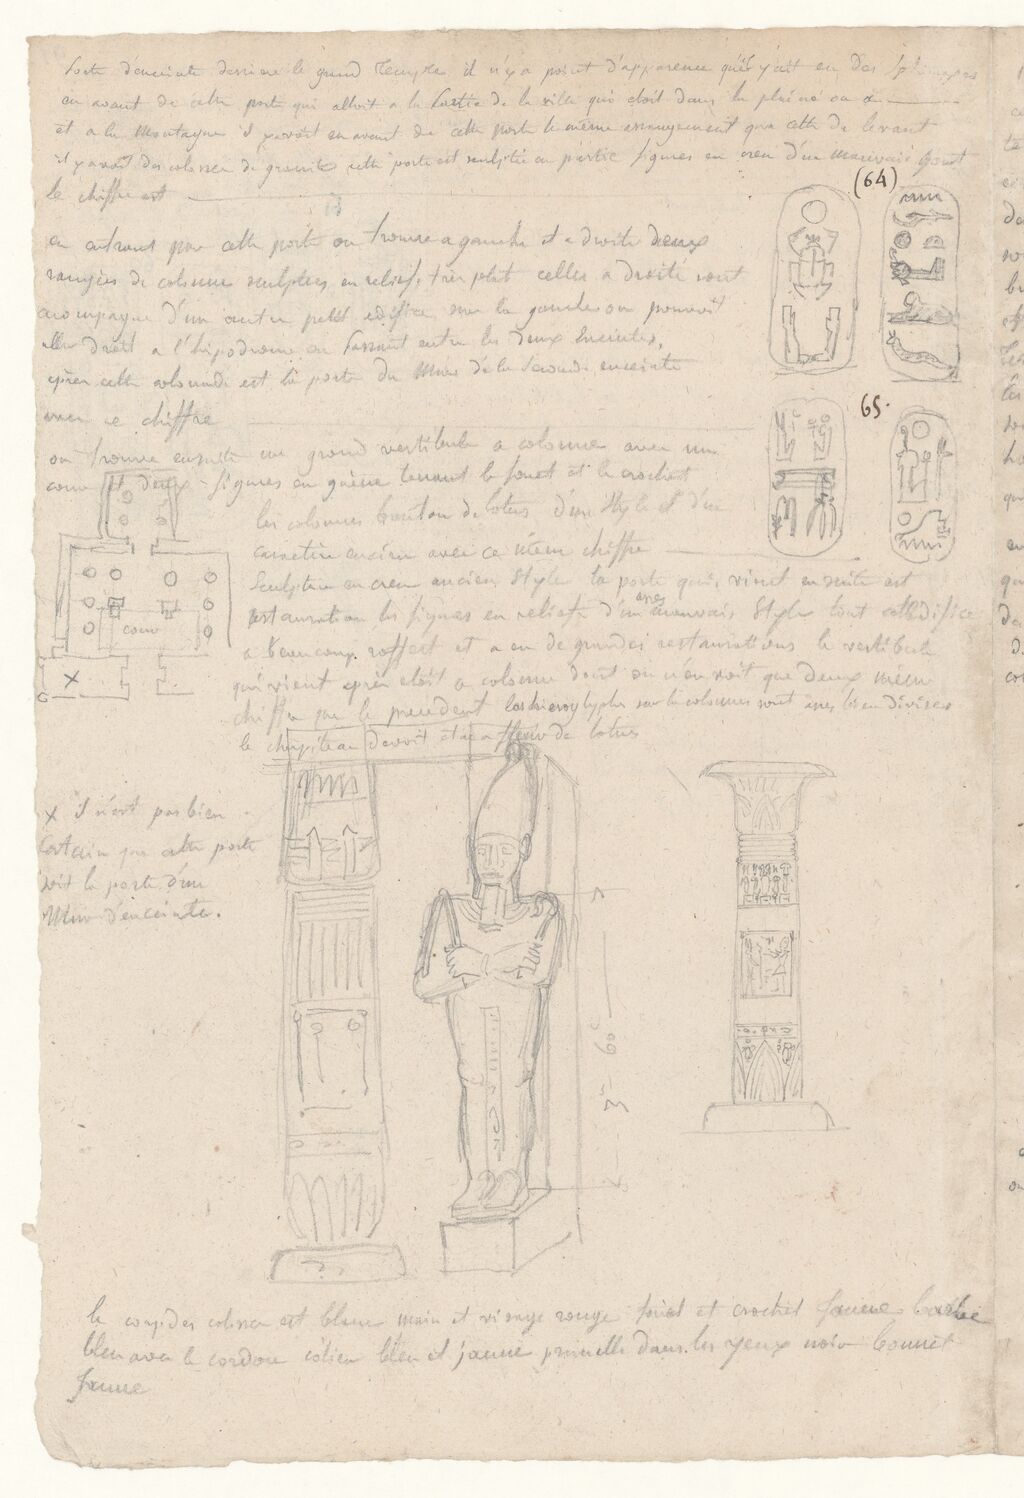 Porte d'enceinte derriere le grand Temple il n'y a point d'apparence qu'il y ait eu des Sphinxes
en avant de cette porte qui alloit a la partie de la ville qui etoit dans la plaine ou
et a la Montagne il paroit en avant de cette porte le même arrangement que celle du levant
il y avoit des colosses de granite cette porte est sculptée en partie figures en creu d'un mauvais gout
le chiffre est
(64)
en entrant par cette porte on trouve a gauche et a droite deux
rangées de colonne sculptées en relief très plat celles a droite sont
acompagné d'un autre petit edifice sur la gauche on pouvoit
aller droit a l'hipodrome en passant entre les deux Enceintes,
après cette colonnade est la porte du Mur de la seconde enceinte
avec ce chiffre
65.
on trouve ensuite un grand vestibule a colonne avec une
cour et deux figures en guêne tenant le fouet et le crochet
les colonnes bouton de lotus d'un Style et d'un
caractère ancien avec ce même chiffre
Sculpture en creu ancien Style la porte qui vient ensuite est
restauration les figures en reliefs d'un assez mauvais Style tout cet édifice
a beaucoup souffert et a eu de grandes restaurations le vestibule
qui vient après etoit a colonne dont on n'en voit que deux même
chiffre que le precedent les hieroglyphes sur les colonnes sont assés bien divisés
le chapiteau devoit etre a fleur de lotus
cour
x
x il n'est pas bien
certain que cette porte
soit la porte d'un
Mur d'enceinte.
le corps des colosses est blanc main et visage rouge fouet et crochet jaune barbe
bleu avec le cordon colier bleu et jaune prunelle dans les yeux noir bonnet
jaune